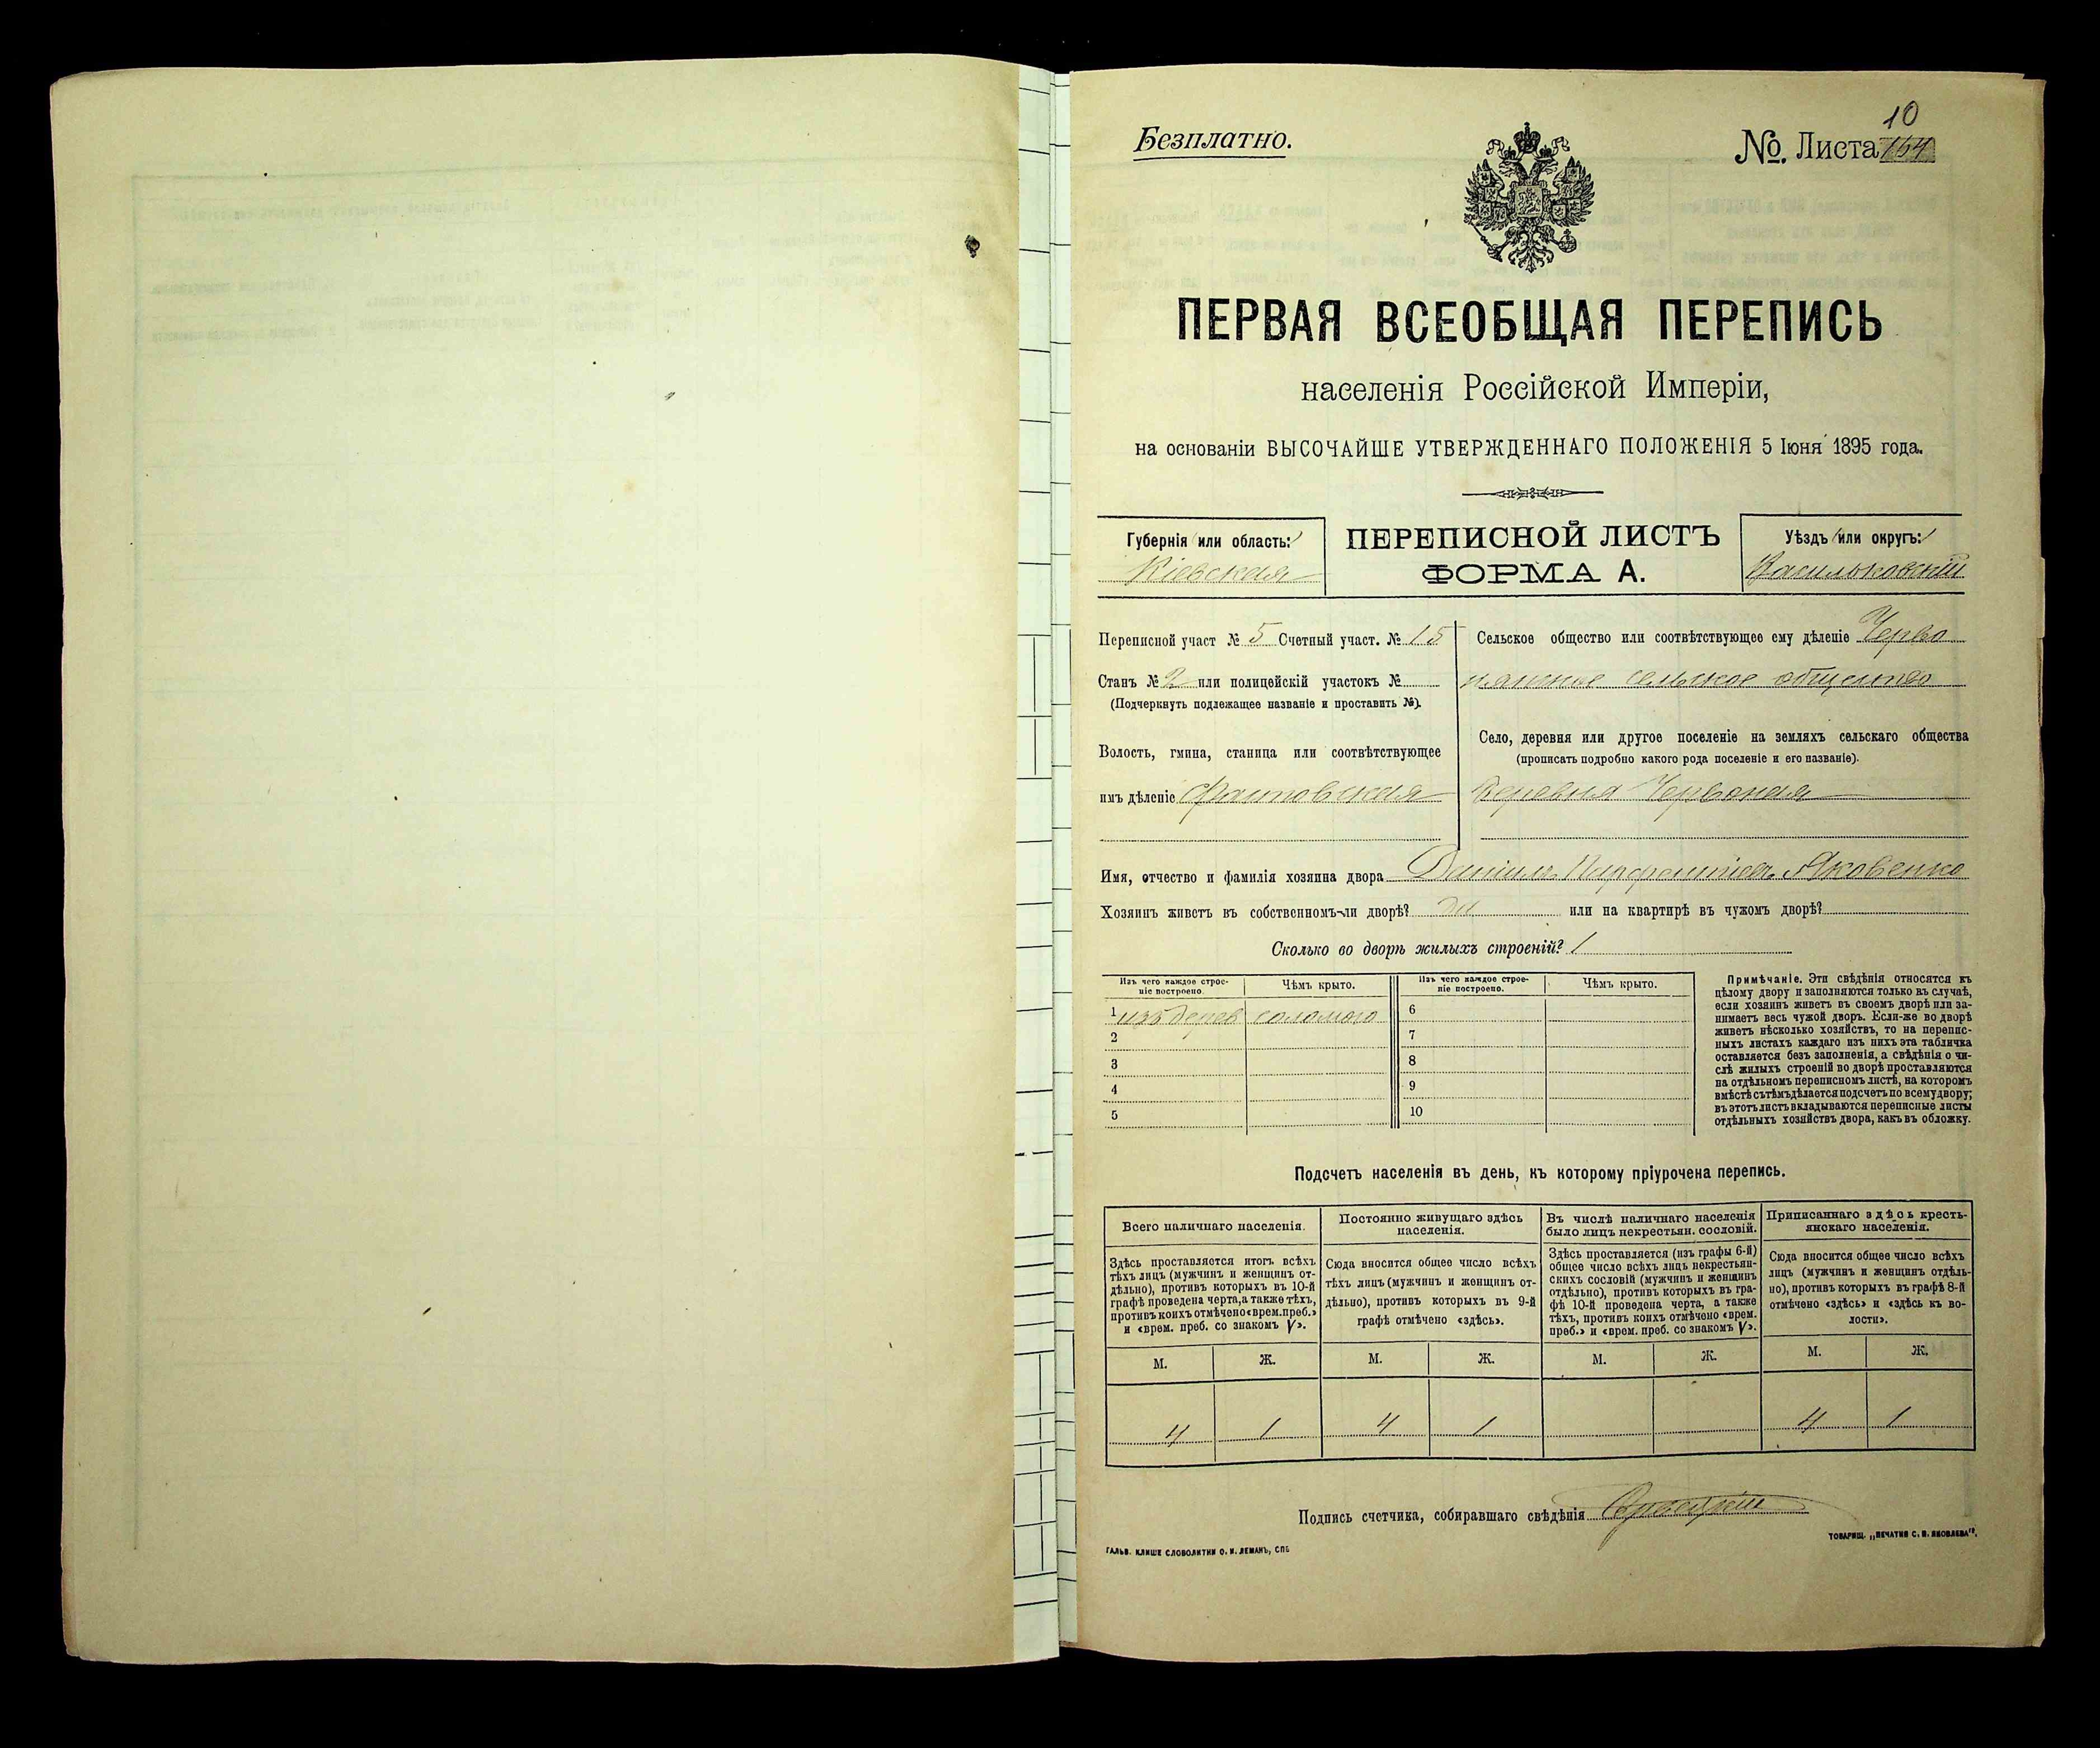 Безплатно.
10
№. Листа 164
ПЕРВАЯ ВСЕОБЩАЯ ПЕРЕПИСЬ
населенія Россійской Имперіи,
на основаніи ВЫСОЧАЙШЕ УТВЕРЖДЕННАГО ПОЛОЖЕНІЯ 5 Іюня 1895 года.
Губернія (или область:)
Кіевская
ПЕРЕПИСНОЙ ЛИСТЪ
ФОРМА А.
Уѣздъ (или округъ:)
Васильковскій
Переписной участ № 5 Счетный участ. № 15
Станъ № 2 или полицейскій участокъ №
(Подчеркнуть подлежащее названіе и проставить №).
Волость, гмина, станица или соотвѣтствующее
имъ дѣленіе Фастовская
Сельское общество или соотвѣтствующее ему дѣленіе Черво
нянское сельское общество
Село, деревня или другое поселеніе на земляхъ сельскаго общества
(прописать подробно какого рода поселеніе и его названіе).
Деревня Червоная
Имя, отчество и фамилія хозяина двора Даніилъ Парфентіевъ Яковенко
Хозяинъ живетъ въ собственномъ-ли дворѣ? да или на квартирѣ въ чужомъ дворѣ?
Сколько во дворѣ жилыхъ строеній? 1
Изъ чего каждое строе-
ніе построено.
Чѣмъ крыто.
Изъ чего каждое строе-
ніе построено.
Чѣмъ крыто.
1 изъ дерев соломою 6
2 7
3 8
4 9
5 10
Примѣчаніе. Эти свѣдѣнія относятся къ
цѣлому двору и заполняются только въ случаѣ,
если хозяинъ живетъ въ своемъ дворѣ или за-
нимаетъ весь чужой дворъ. Если-же во дворѣ
живетъ нѣсколько хозяйствъ, то на перепис-
ныхъ листахъ каждаго изъ нихъ эта табличка
оставляется безъ заполненія, а свѣдѣнія о чи-
слѣ жилыхъ строеній во дворѣ проставляются
на отдѣльномъ переписномъ листѣ, на которомъ
вмѣстѣ съ тѣмъ дѣлается подсчетъ по всему двору;
въ этотъ листъ вкладываются переписные листы
отдѣльныхъ хозяйствъ двора, какъ въ обложку.
Подсчетъ населенія въ день, къ которому пріурочена перепись.
Всего наличнаго населенія.
Здѣсь проставляется итогъ всѣхъ
тѣхъ лицъ (мужчинъ и женщинъ от-
дѣльно), противъ которыхъ въ 10-й
графѣ проведена черта, а также тѣхъ,
противъ коихъ отмѣчено «врем. преб.»
и «врем. преб. со знакомъ V».
Постоянно живущаго здѣсь
населенія.
Сюда вносится общее число всѣхъ
тѣхъ лицъ (мужчинъ и женщинъ от-
дѣльно), противъ которыхъ въ 9-й
графѣ отмѣчено «здѣсь».
Въ числѣ наличнаго населенія
было лицъ некрестьян. сословій.
Здѣсь проставляется (изъ графы 6-й)
общее число всѣхъ лицъ некрестьян-
скихъ сословій (мужчинъ и женщинъ
отдѣльно), противъ которыхъ въ гра-
фѣ 10-й проведена черта, а также
тѣхъ, противъ коихъ отмѣчено «врем.
преб.» и «врем. преб. со знакомъ V».
Приписаннаго здѣсь кресть-
янскаго населенія.
Сюда вносится общее число всѣхъ
лицъ (мужчинъ и женщинъ отдѣль-
но), противъ которыхъ въ графѣ 8-й
отмѣчено «здѣсь» и «здѣсь къ во-
лости».
М. Ж. М. Ж. М. Ж. М. Ж.
4 1 4 1 4 1
Подпись счетчика, собиравшаго свѣдѣнія
ГАЛЬВ. КЛИШЕ СЛОВОЛИТНИ О. И. ЛЕМАНЪ, СПБ
ТОВАРИЩ. „ПЕЧАТНЯ С. П. ЯКОВЛЕВА".